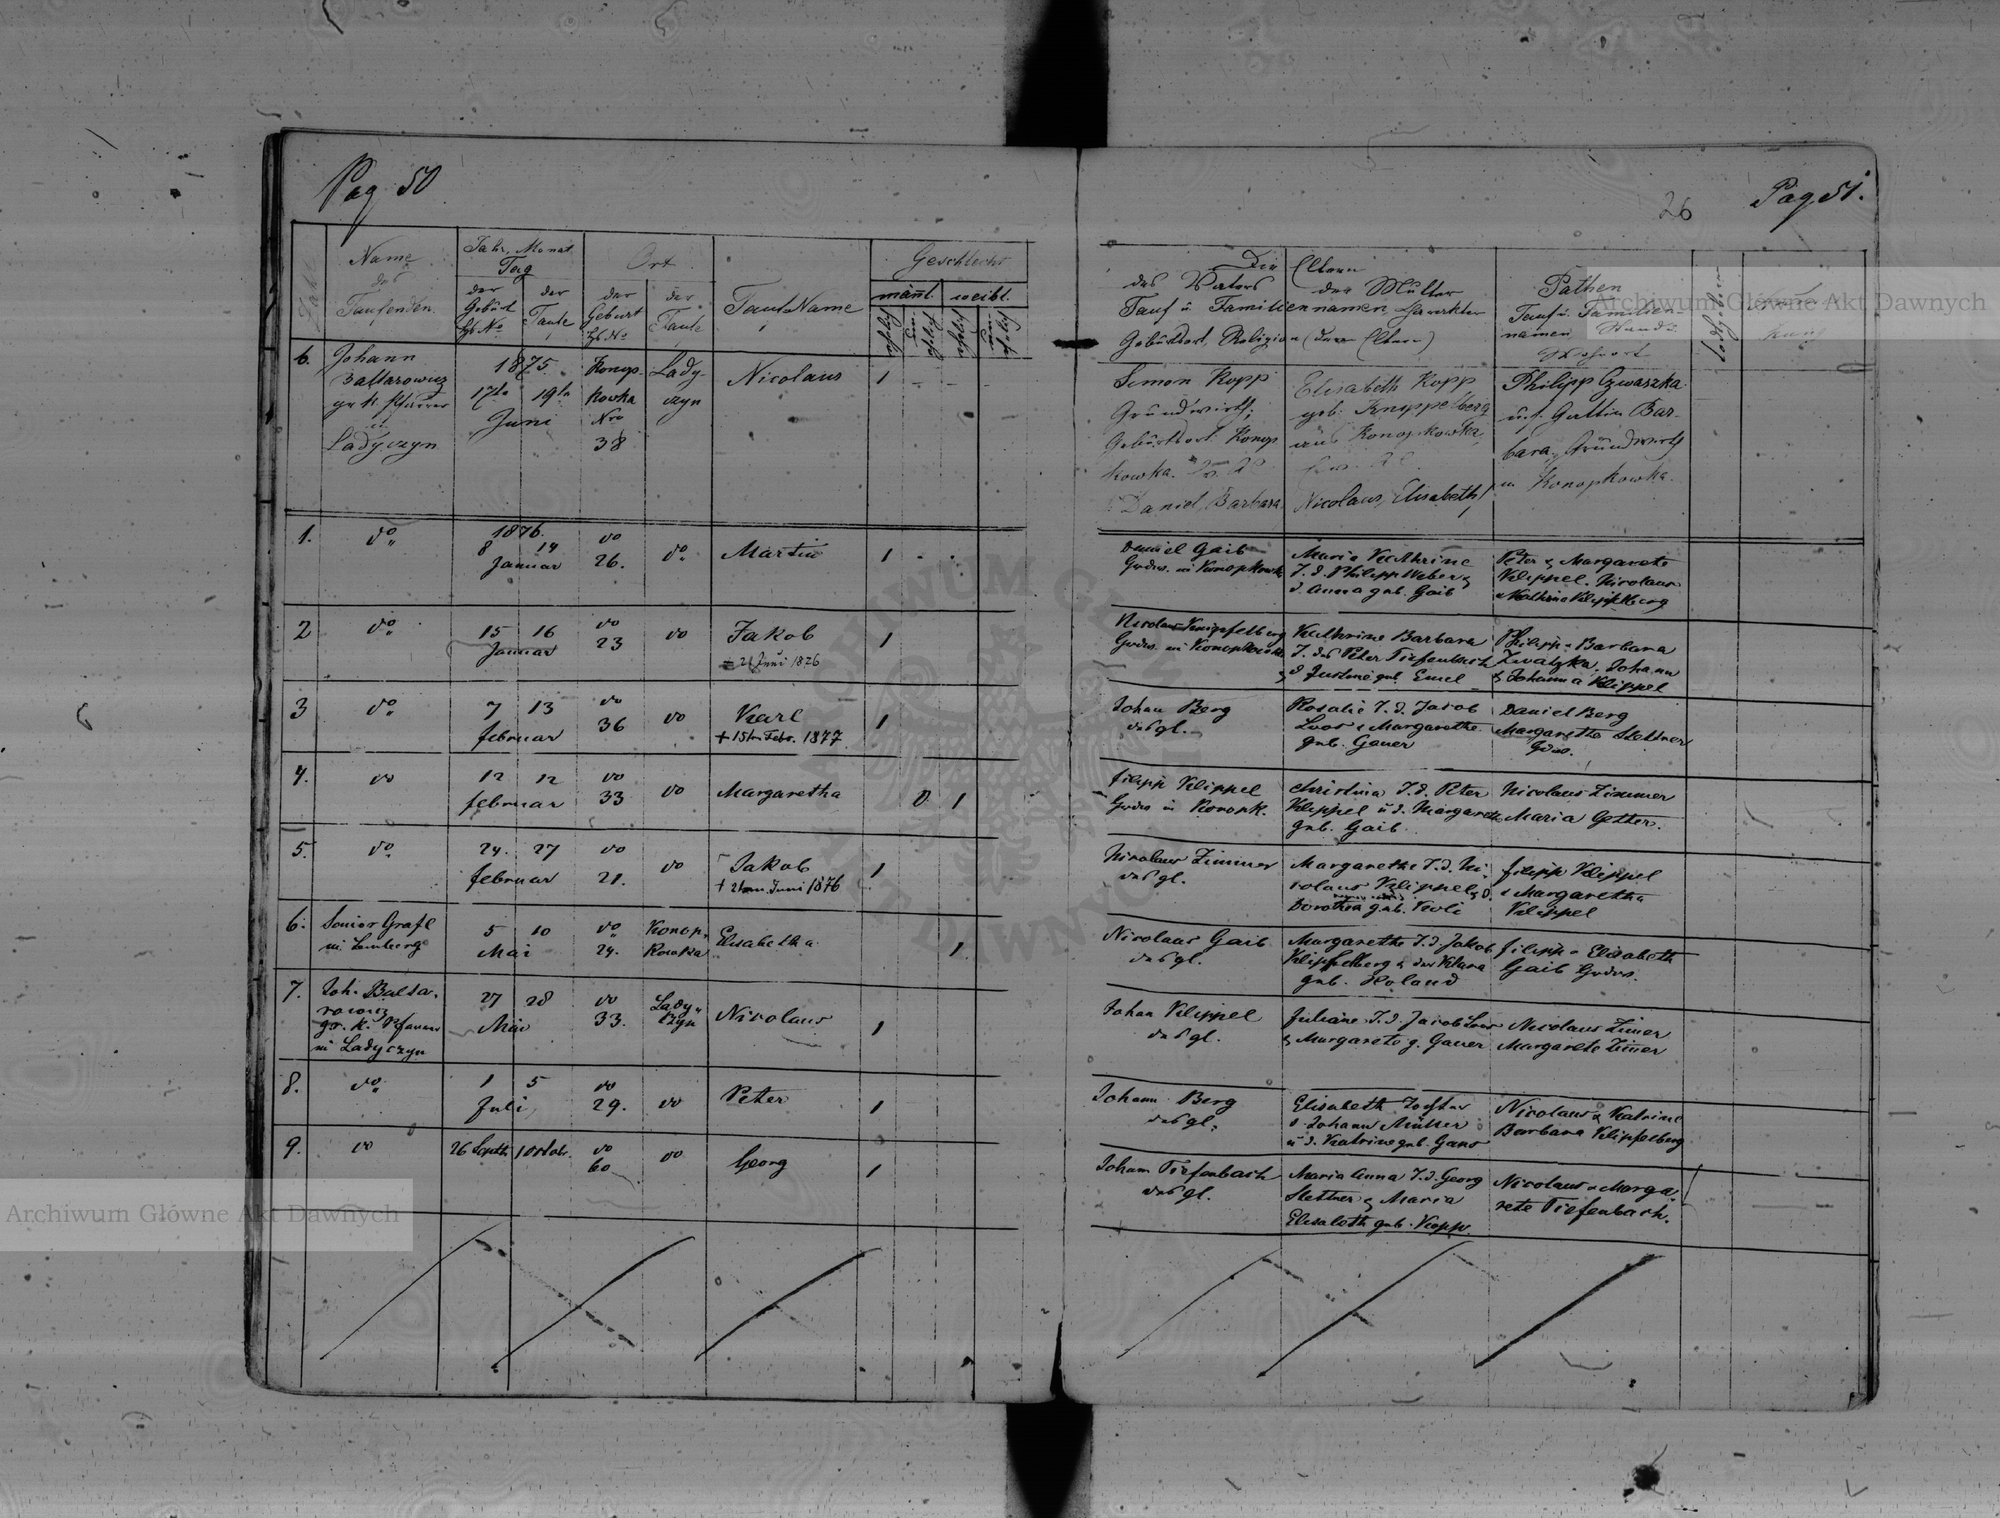 Pag 50
26
Pag 51.
Archiwum Główne Akt Dawnych
Zahl
Name
des
Taufenden.
Jahr, Monat
Tag
der
Geburt
Hs No
der
Taufe
Ort
der
Geburt
Hs No
der
Taufe
Tauf-Name
Geschlecht
männl. weibl.
Die Eltern
des Vaters der Mutter
Tauf u. Familiennamen, Charakter
Geburtsort, Religion (deren Eltern)
Pathen
Tauf u. Familien
namen Stand u.
Wohnort
6.
Johann
Baltarowicz
gr. k. Pfarrer
in
Ladyczyn
1875.
17te 19te
Juni
Konop-
kowka
Nro
38
Lady-
czyn
Nicolaus
1
Simon Kopp
Grundwirth,
Geburtsort Konop
kowka.
Daniel, Barbara
Elisabeth Kopp
geb. Knippelberg
aus Konopkowka
Nicolaus, Elisabeth
Philipp Czwaszka
u. s. Gattin Bar-
bara, Grundwirth
in Konopkowka.
1. do 1876.
8 14
Januar
do
26.
do
Martin
1
Daniel Gaib
Grdw. in Konopkowk
Marie Kathrine
T. d. Philipp Weber &
d. Anna geb. Gaib
Peter & Margarete
Klippel. Nicolaus
& Kathrine Klippelberg
2 do
15 16
Januar
do
23
do
Jakob
21 Juni 1876
1
Nicolaus Knippelberg
Grdw. in Konopkowka
Kathrine Barbara
T. des Peter Tiefenbach
& d Justine geb Emel
Philipp & Barbara
Zwatzka, Johann
& Johanna Klippel
3 do
7 13
februar
do
36
do
Karl
+ 15ten Febr. 1877
1
Johan Berg
desgl.
Rosalie T. d. Jacob
Loos & Margarethe
geb. Gauer
Daniel Berg
Margarethe Stettner
Grdw.
4. do
12 12
februar
do
33
do
Margaretha
0 1
filipp Klippel
Grdw in Konopk.
Christina T. d. Peter
Klippel u. d. Margarethe
geb. Gaib.
Nicolaus Zimmer
Maria Getter.
5. do
24. 27
februar
do
21.
do
Jakob
+ 21ten Juni 1876
1
Nicolaus Zimmer
desgl.
Margarethe T. d. Ni-
colaus Klippel & d.
Dorothea geb. Keoli
filipp Klippel
& Margaretha
Klippel
6.
Senior Grafl
in Lemberg
5 10
Mai
do
24.
Konop-
kowka
Elisabetha
1.
Nicolaus Gaib
desgl.
Margarethe T. d. Jakob
Klippelberg & der Klara
geb. Roland
filipp & Elisabeth
Gaib Grdw.
7.
Joh. Balta-
rowicz
gr. k. Pfarrer
in Ladyczyn
27 28
Mai
do
33.
Lady-
czyn
Nicolaus
1
Johan Klippel
desgl.
Juliane T. d. Jacob Loos
& Margarete g. Gauer
Nicolaus Zimer
Margarete Zimer
8. do
1 5
Juli
do
29.
do
Peter
1
Johann Berg
desgl.
Elisabeth Tochter
d Johann Müller
u. d. Katrine geb. Gans
Nicolaus & Katrine
Barbara Klippelberg
9. do
26 Septb 1 Octob.
do
60
do
Georg
1
Johann Tiefenbach
desgl.
Maria Anna T. d. Georg
Stettner & Maria
Elisabeth geb. Kopp.
Nicolaus & Marga-
rete Tiefenbach.
Archiwum Główne Akt Dawnych